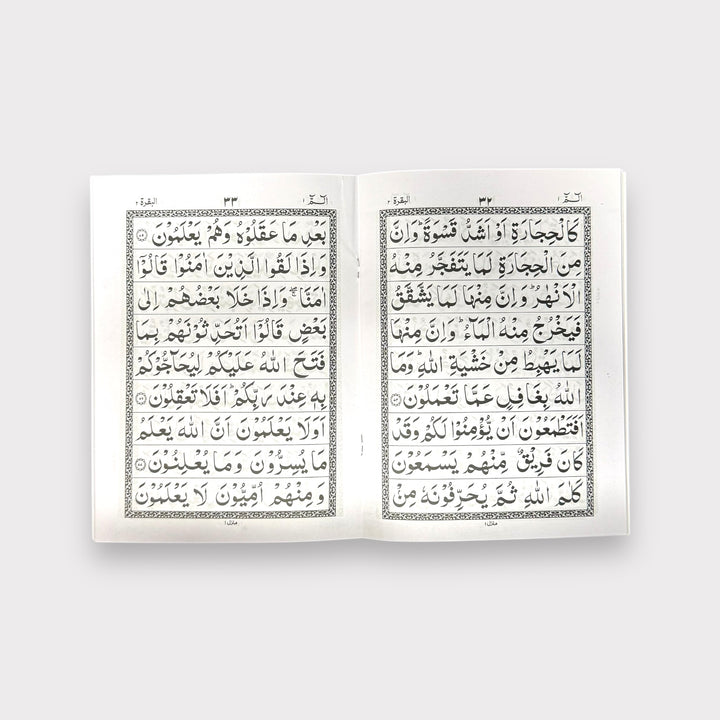 الٓمّٓ ١ ٣٢ البقرة ٢
كَالْحِجَارَةِ اَوْ اَشَدُّ قَسْوَةً ؕ وَاِنَّ
مِنَ الْحِجَارَةِ لَمَا يَتَفَجَّرُ مِنْهُ
الْاَنْهٰرُ ؕ وَاِنَّ مِنْهَا لَمَا يَشَّقَّقُ
فَيَخْرُجُ مِنْهُ الْمَآءُ ؕ وَاِنَّ مِنْهَا
لَمَا يَهْبِطُ مِنْ خَشْيَةِ اللّٰهِ ؕ وَمَا
اللّٰهُ بِغَافِلٍ عَمَّا تَعْمَلُوْنَ ﴿٧٤﴾
اَفَتَطْمَعُوْنَ اَنْ يُّؤْمِنُوْا لَكُمْ وَقَدْ
كَانَ فَرِيْقٌ مِّنْهُمْ يَسْمَعُوْنَ
كَلٰمَ اللّٰهِ ثُمَّ يُحَرِّفُوْنَهٗ مِنْۢ
منزل ١
الٓمّٓ ١ ٣٣ البقرة ٢
بَعْدِ مَا عَقَلُوْهُ وَهُمْ يَعْلَمُوْنَ ﴿٧٥﴾
وَاِذَا لَقُوا الَّذِيْنَ اٰمَنُوْا قَالُوْٓا
اٰمَنَّا ۖۚ وَاِذَا خَلَا بَعْضُهُمْ اِلٰى
بَعْضٍ قَالُوْٓا اَتُحَدِّثُوْنَهُمْ بِمَا
فَتَحَ اللّٰهُ عَلَيْكُمْ لِيُحَآجُّوْكُمْ
بِهٖ عِنْدَ رَبِّكُمْ ؕ اَفَلَا تَعْقِلُوْنَ ﴿٧٦﴾
اَوَلَا يَعْلَمُوْنَ اَنَّ اللّٰهَ يَعْلَمُ
مَا يُسِرُّوْنَ وَمَا يُعْلِنُوْنَ ﴿٧٧﴾
وَمِنْهُمْ اُمِّيُّوْنَ لَا يَعْلَمُوْنَ
منزل ١